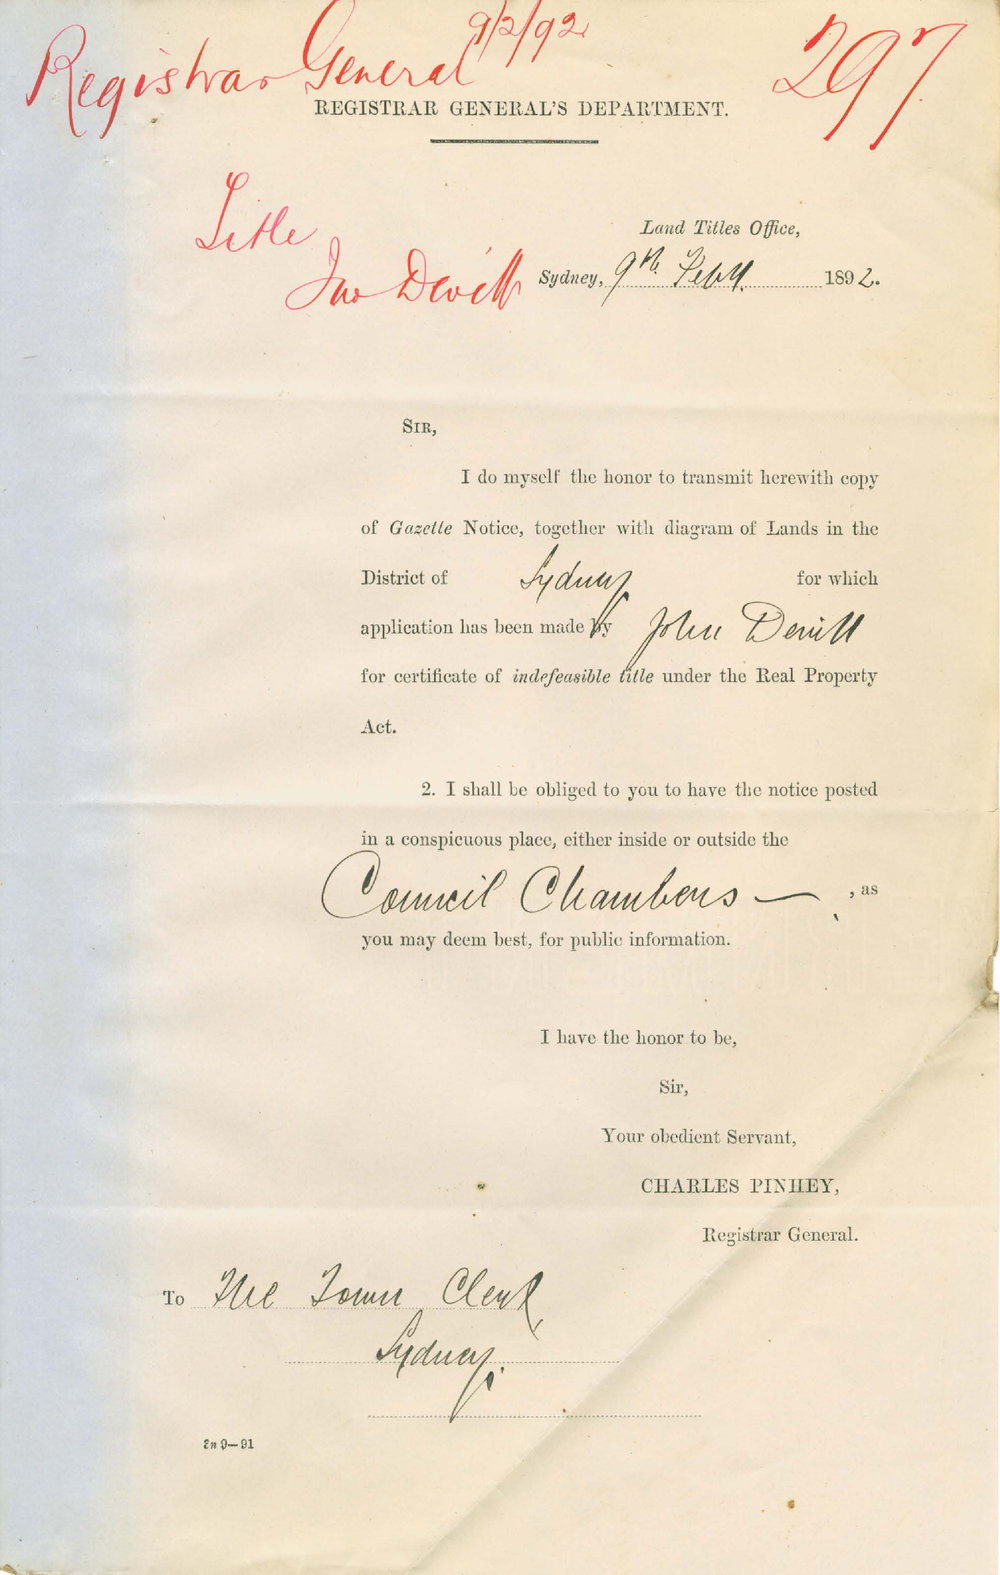 Registrar General 9/2/92
297
REGISTRAR GENERAL'S DEPARTMENT.
Title
Jno Devitt
Land Titles Office,
Sydney, 9th. Feby. 1892.
SIR,
I do myself the honor to transmit herewith copy
of Gazette Notice, together with diagram of Lands in the
District of Sydney for which
application has been made by John Devitt
for certificate of indefeasible title under the Real Property
Act.
2. I shall be obliged to you to have the notice posted
in a conspicuous place, either inside or outside the
Council Chambers — , as
you may deem best, for public information.
I have the honor to be,
Sir,
Your obedient Servant,
CHARLES PINHEY,
Registrar General.
To The Town Clerk,
Sydney.
9—91